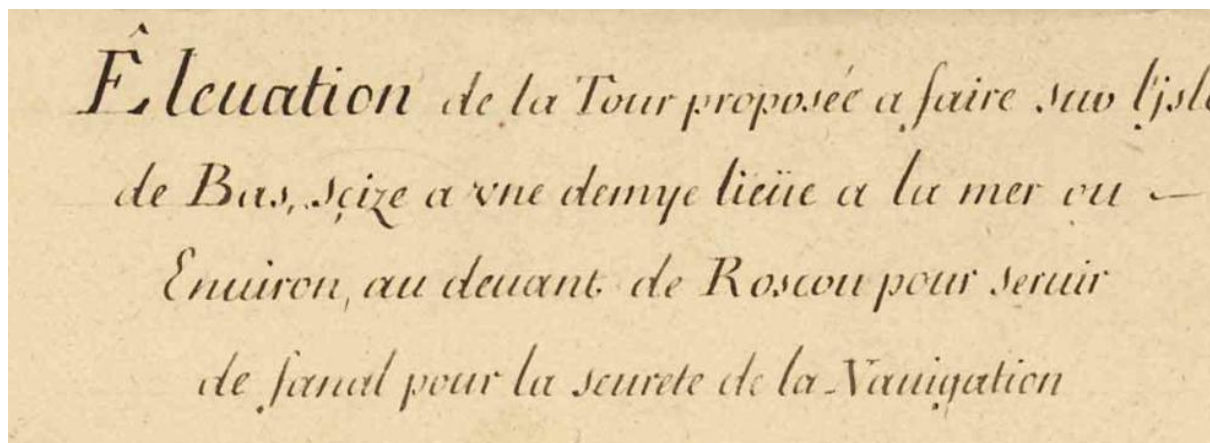 Êleuation de la Tour proposée a faire sur l'jsle
de Bas, sçize a vne demye lieüe a la mer ou –
Enuiron, au deuant de Roscou pour seruir
de fanal pour la seureté de la Nauigation